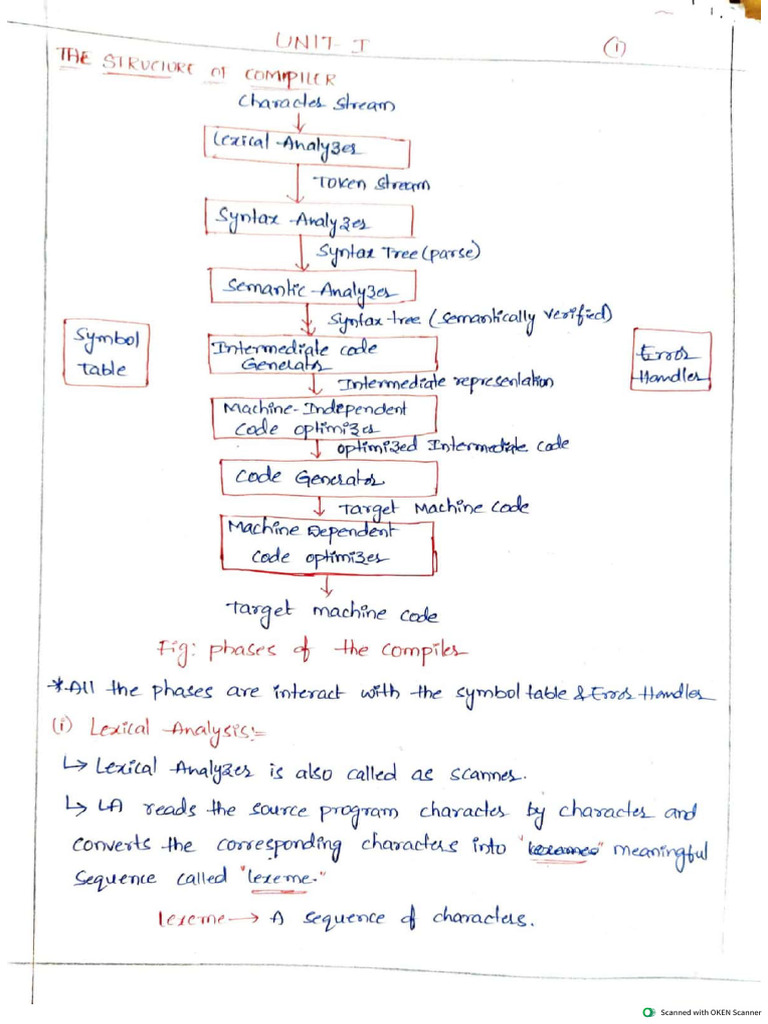 UNIT-I
(1)
THE STRUCTURE OF COMPILER
character stream
Lexical-Analyzer
Token stream
Syntax-Analyzer
Syntax Tree (parse)
Semantic-Analyzer
Syntax tree (semantically verified)
Symbol
table
Intermediate code
Generator
Error
Handler
Intermediate representation
Machine-Independent
code optimizer
optimized Intermediate code
Code Generator
Target Machine code
Machine Dependent
code optimizer
Target machine code
Fig: phases of the compiler
*All the phases are interact with the symbol table & Error Handler
(i) Lexical Analysis:=
↳ Lexical Analyzer is also called as scanner.
↳ LA reads the source program character by character and
converts the corresponding characters into " " meaningful
sequence called "lexeme."
lexeme → A sequence of characters.
Scanned with OKEN Scanner